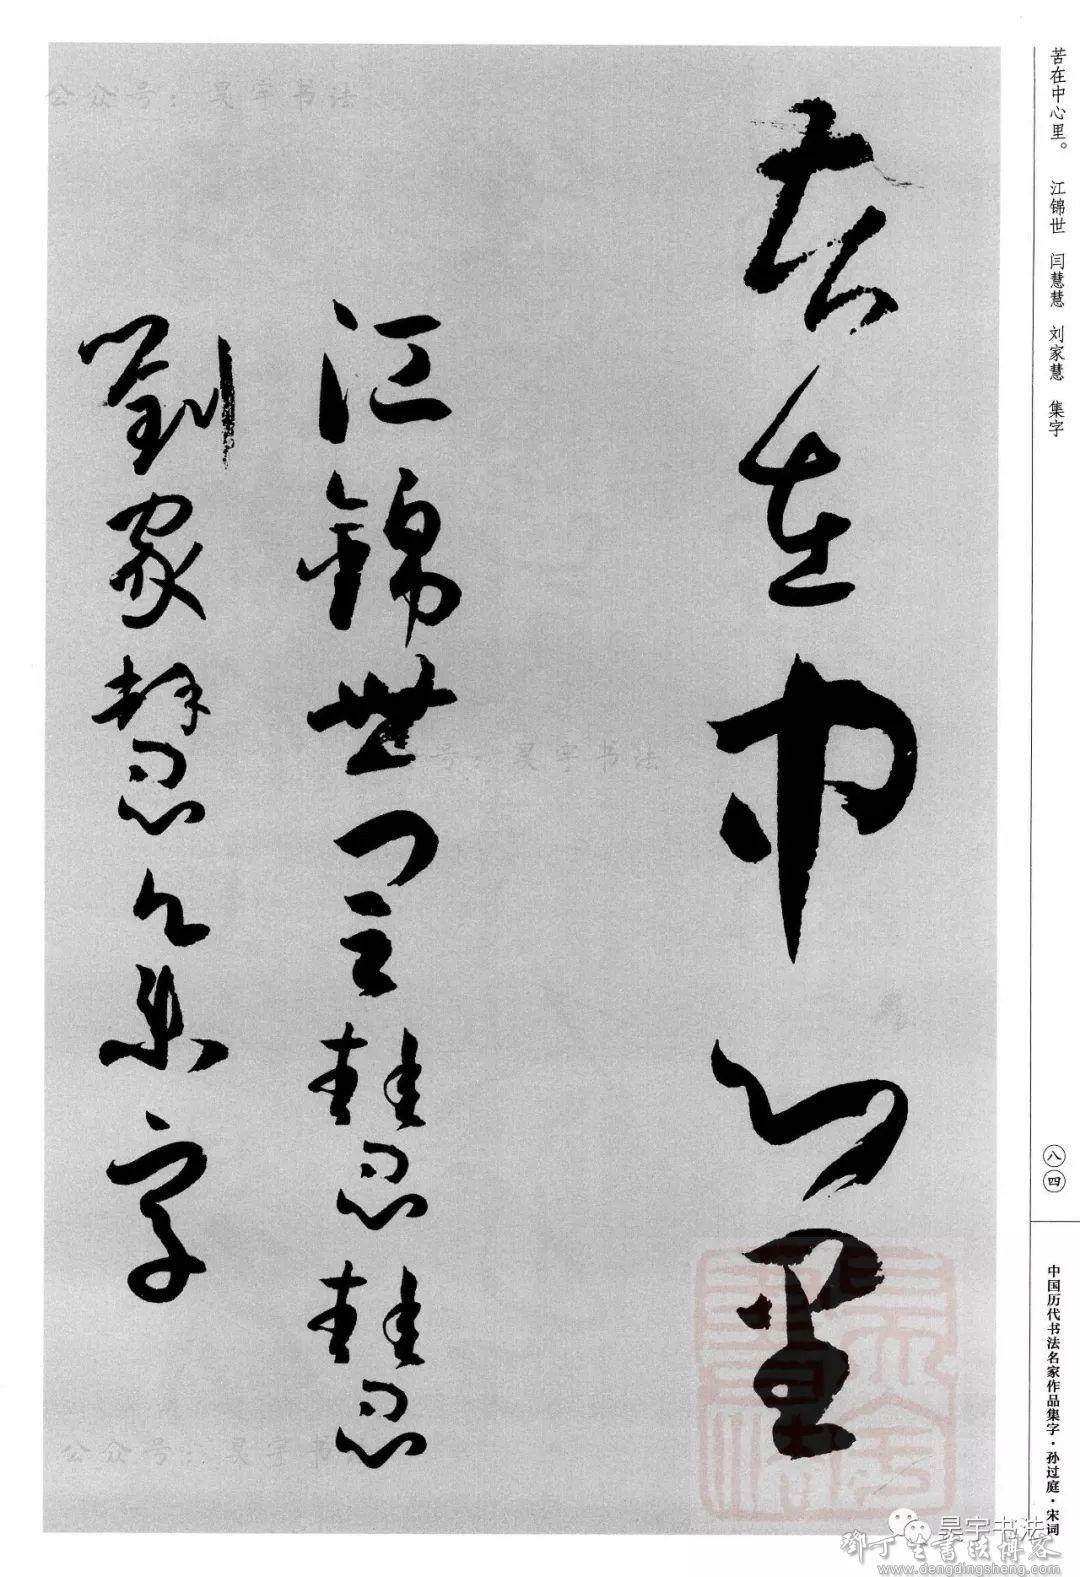 苦在中心里
江锦世闫慧慧
劉家慧集字
苦在中心里。 江锦世 闫慧慧 刘家慧 集字
八四
中国历代书法名家作品集字·孙过庭·宋词
公众号：昊宇书法
号：昊宇书法
公众号：昊宇书
昊宇书法
鄧丁生書法博客
www.dengdingsheng.com